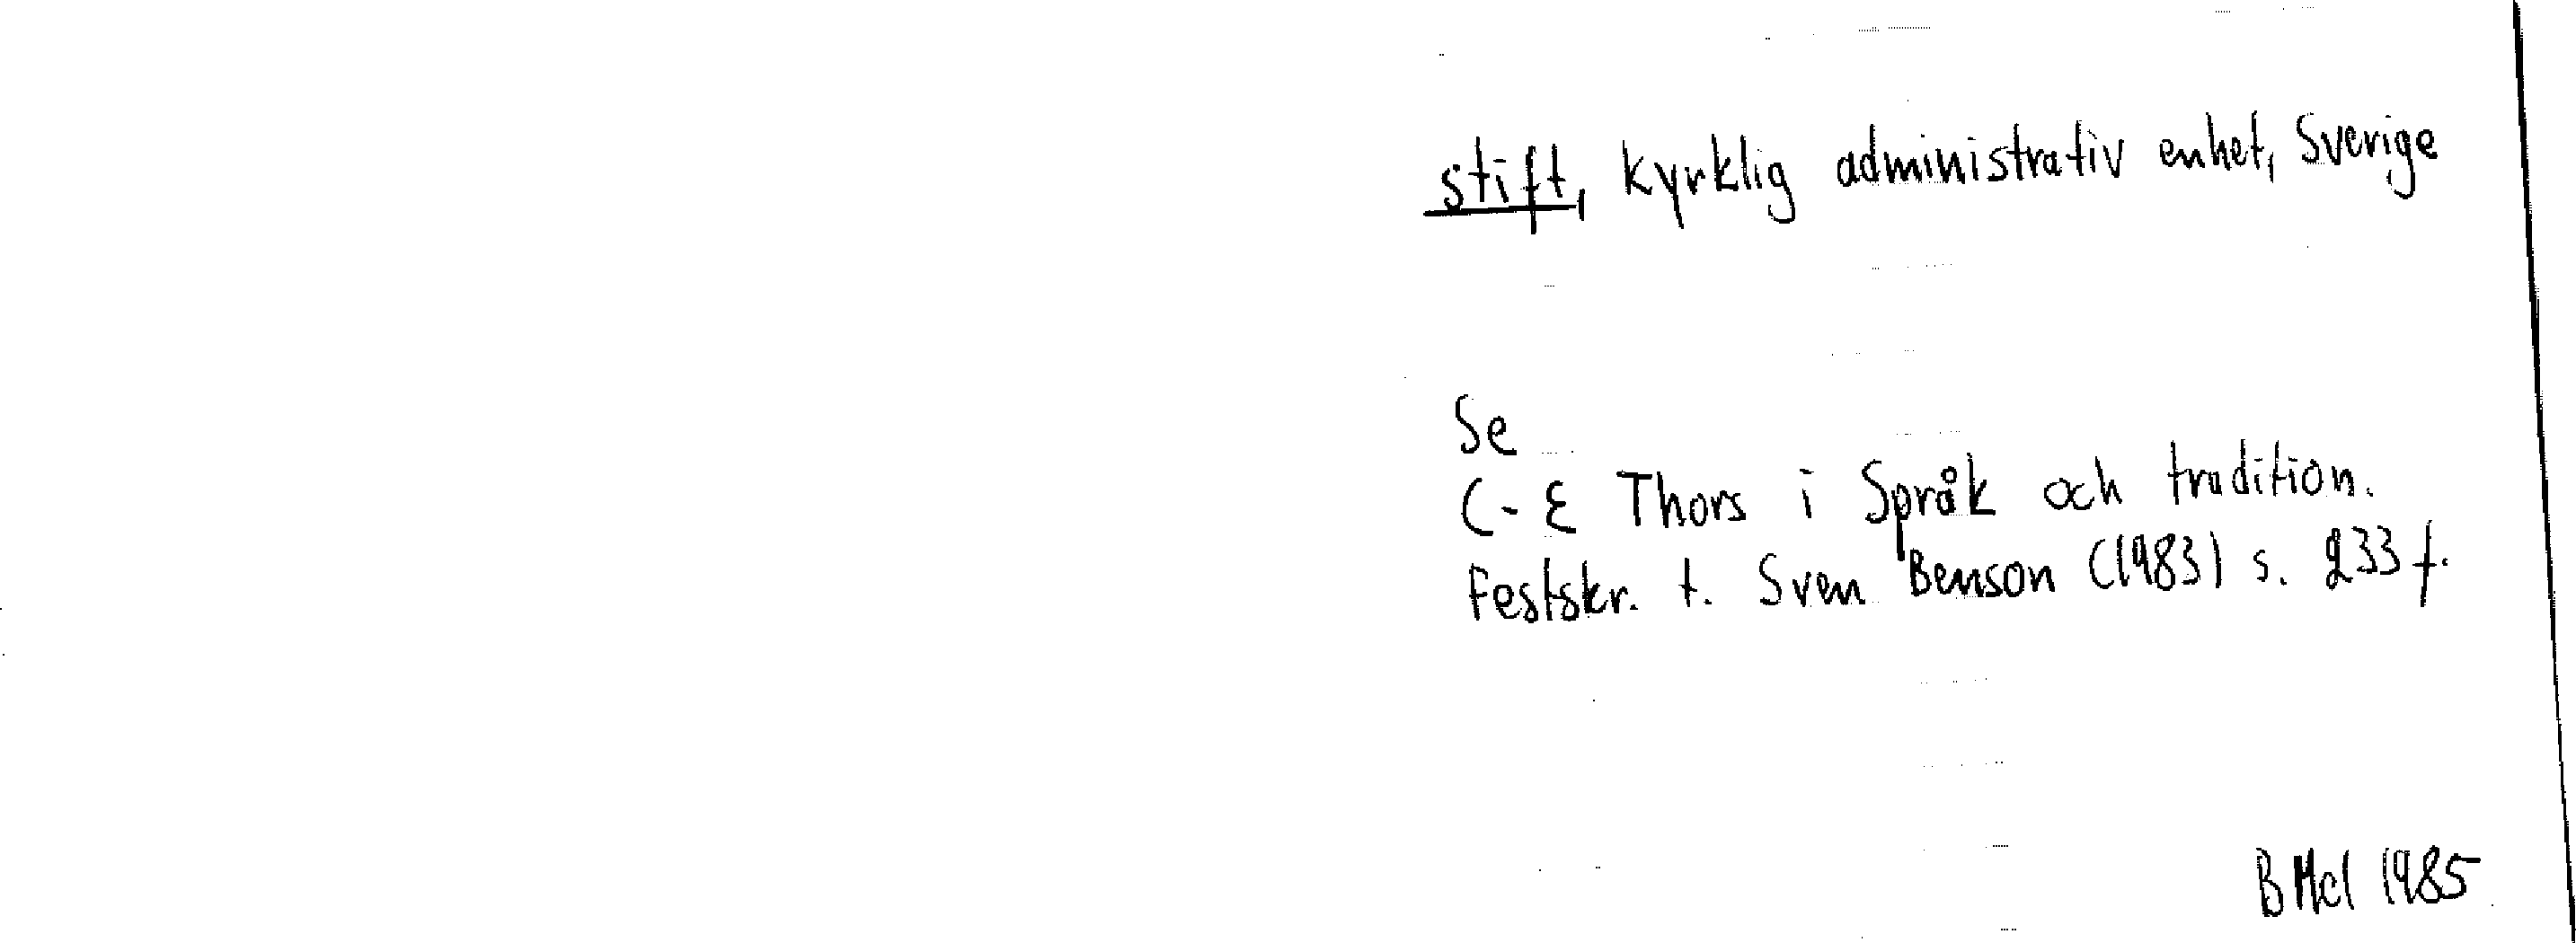 stift, kyrklig administrativ enhet, Sverige
Se
C-E Thors i Språk och tradition.
Festskr. t. Sven Benson (1983) s. 233 f.
B Mcl 1985